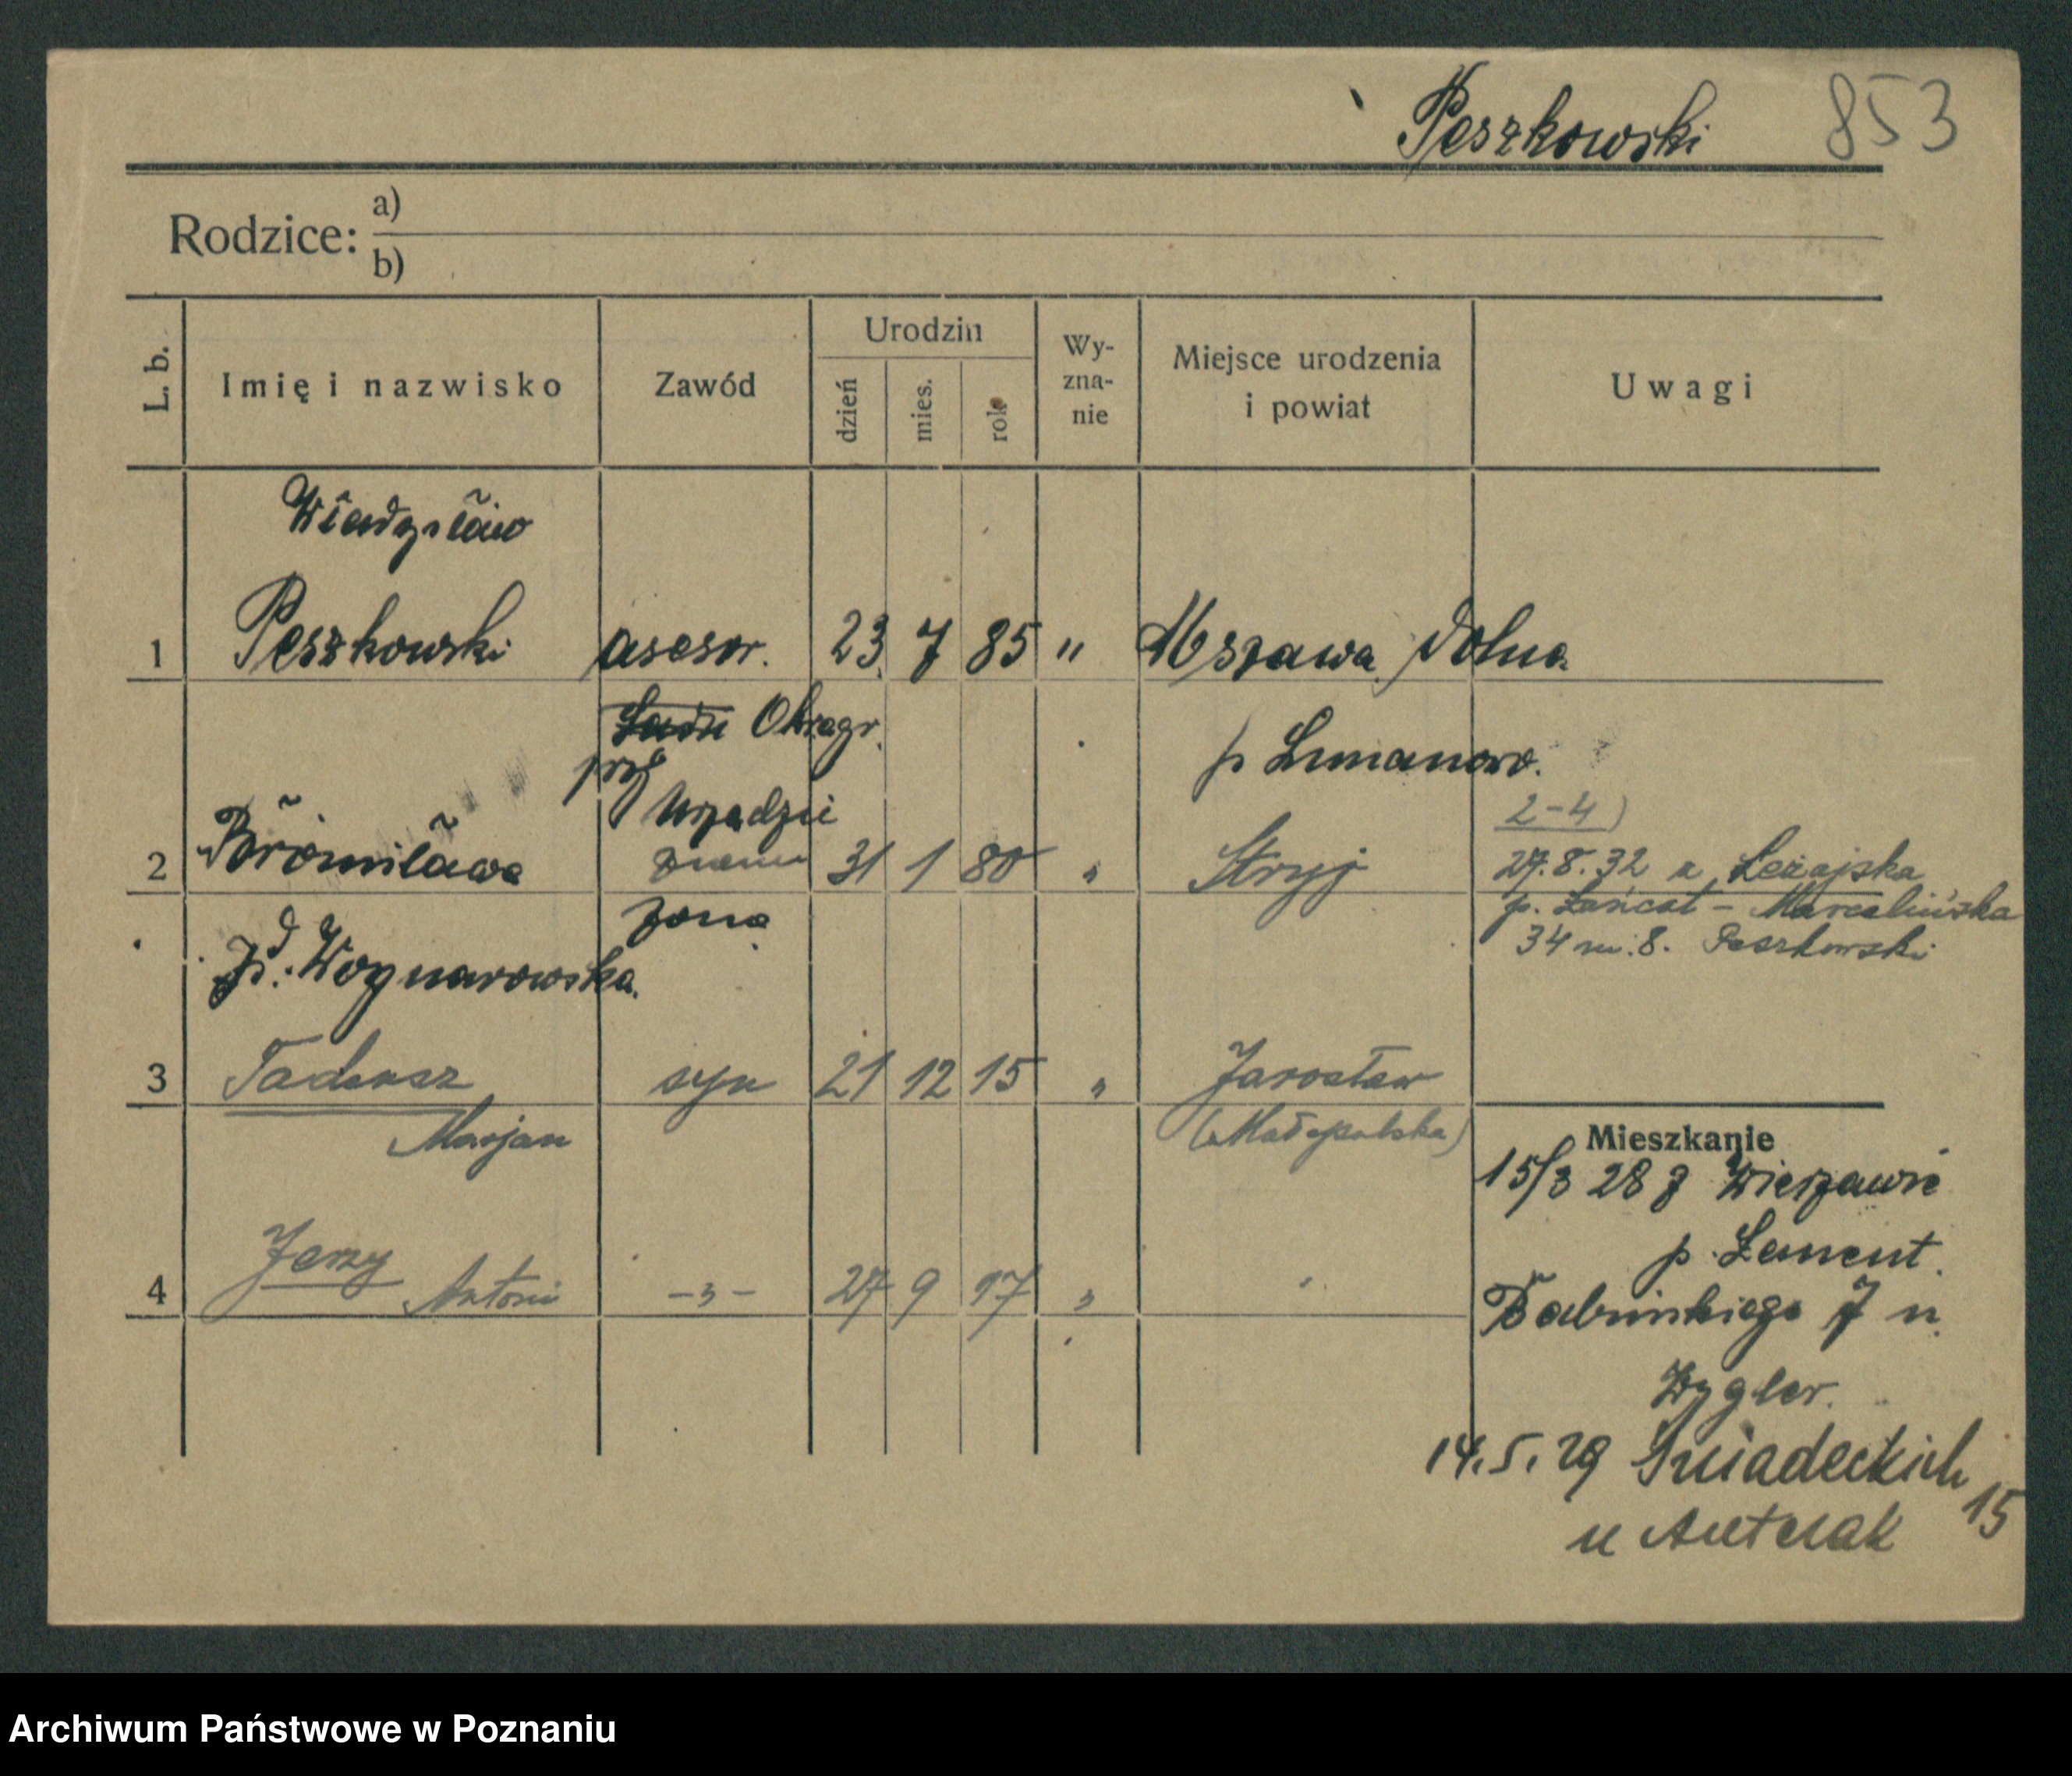 Peszkowski 853
Rodzice: a)
b)
L. b. Imię i nazwisko Zawód Urodzin dzień mies. rok Wy-zna-nie Miejsce urodzenia i powiat Uwagi
Władysław
1 Peszkowski asesor. 23 7 85 " Mszawa Dolna
Okręgr.
przy p Limanow.
Urządzie
2-4)
2 Bronisława 31 1 80 " Stryj 27.8.32 z Leżajska
żona p. Łańcut - Marcelińska
34 m. 8. Peszkowski
Wognarowska.
3 Tadeusz syn 21 12 15 " Jarosław
Marjan (Małopolska)
Mieszkanie
15/3 28 z Wierzawic
4 Jerzy Antoni -"- 27 9 17 "
Wygler.
14.5.29 Śniadeckich 15
u Antczak
Archiwum Państwowe w Poznaniu